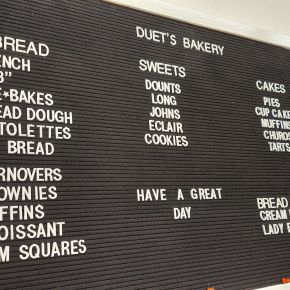 DUET'S BAKERY
BREAD
ENCH
8"
E+BAKES
EAD DOUGH
TOLETTES
BREAD
RNOVERS
OWNIES
FFINS
OISSANT
M SQUARES
SWEETS
DOUNTS
LONG
JOHNS
ECLAIR
COOKIES
HAVE A GREAT
DAY
CAKES
PIES
CUP CAKE
MUFFINS
CHUROS
TARTS
BREAD
CREAM
LADY F